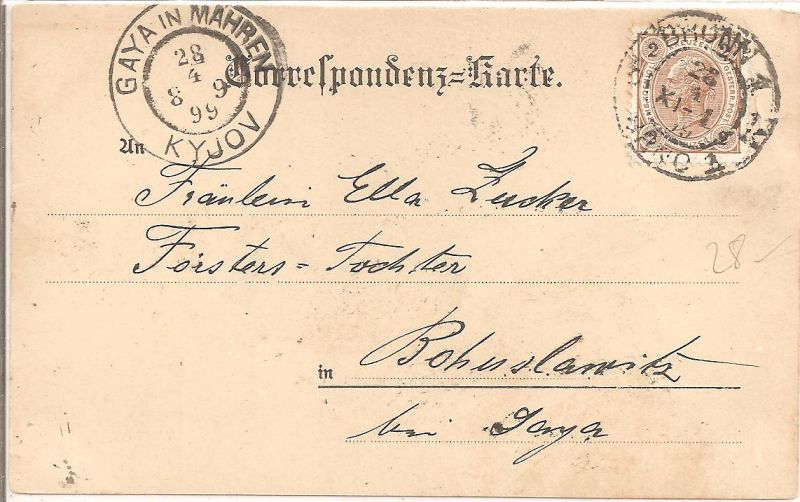 GAYA IN MÄHREN
28
4
8 9
99
KYJOV
Correspondenz=Karte.
2
An
Fräulein Ella Zucker
Försters=Tochter
in Bohuslawitz
bei Gaya
28-